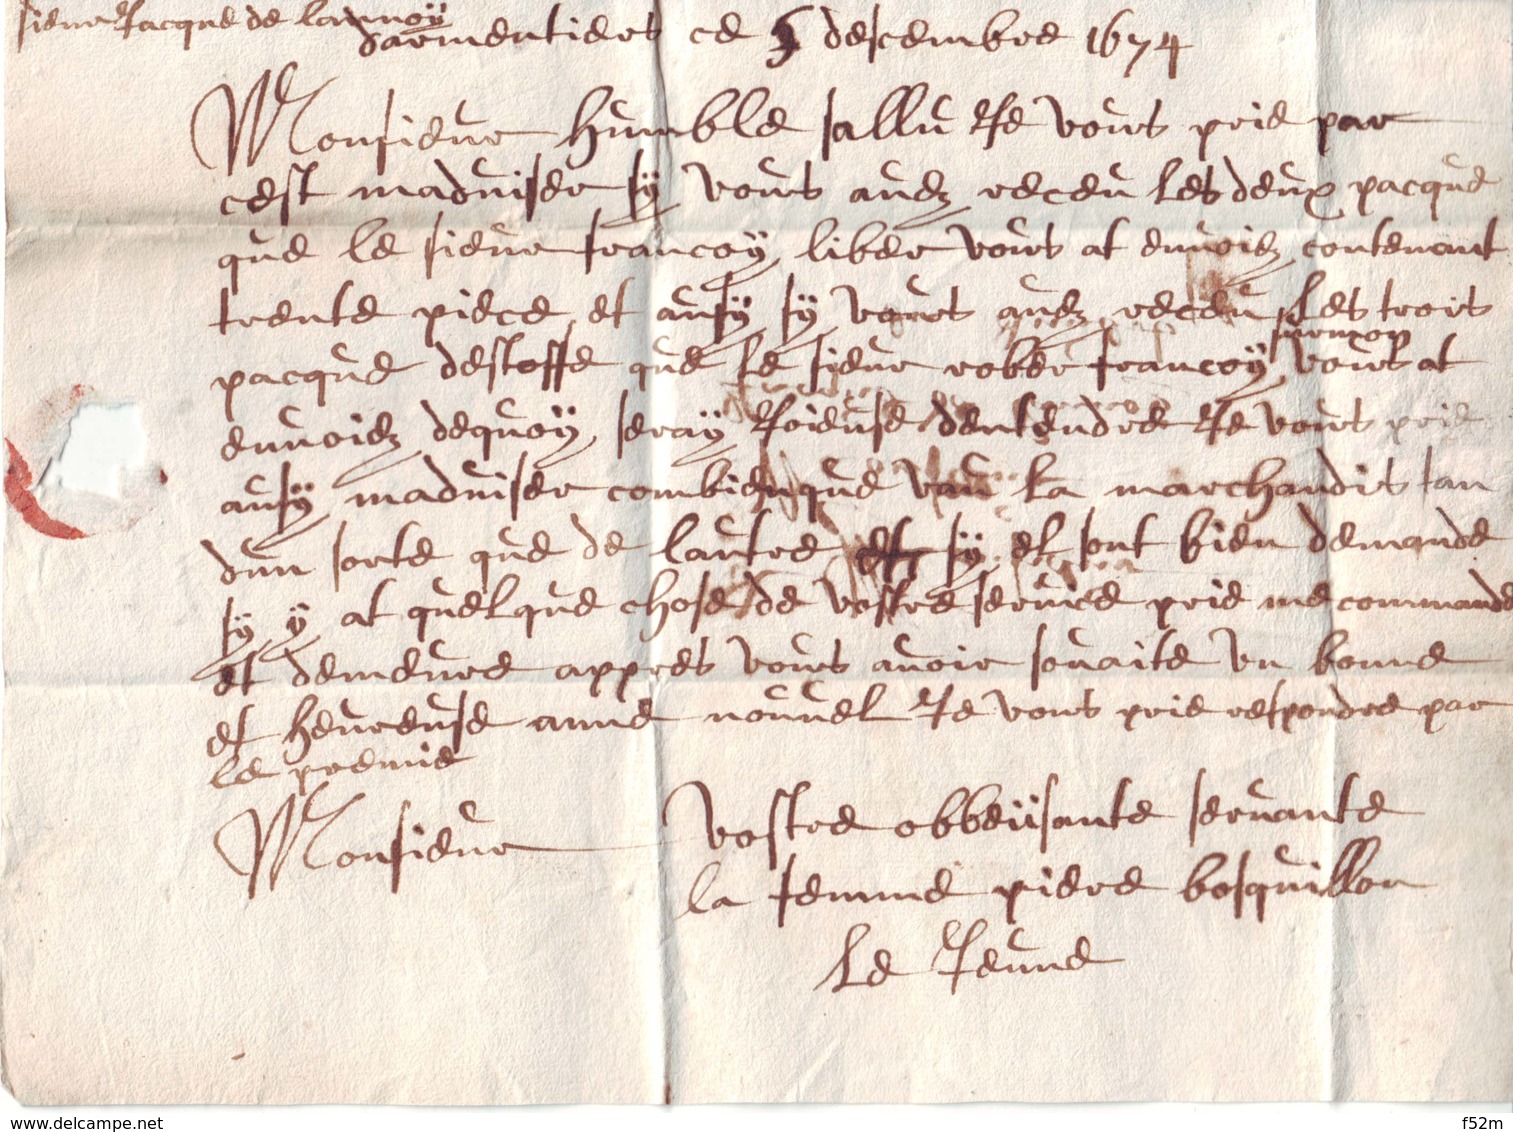 sieur Jacque de lannoÿ
darmentiers ce 5 descembre 1674
Monsieur humble sallu Je vous prie par
cest maduiser sÿ vous auez receu les deux pacque
que le sieur francoÿ liber vous at enuoiez contenant
trente piece et ausÿ sÿ vous auez receu les trois
pacque destoffe que le sieur robber francoÿ vous at
enuoiez dequoÿ seraÿ Joieuse dentendre Je vous prie
ausÿ maduiser combien que vau la marchandis tan
dun sorte que de lautre sÿ et sont bien demande
sÿ ÿ at quelque chose de vostre seruice prie me commande
et demeure appres vous auoir souaite vn bonne
et heureuse anne nouuel Je vous prie respondre par
le premie
Monsieur vostre obbeÿsante seruante
la femme piere bosquillon
le Jeune
www.delcampe.net
f52m